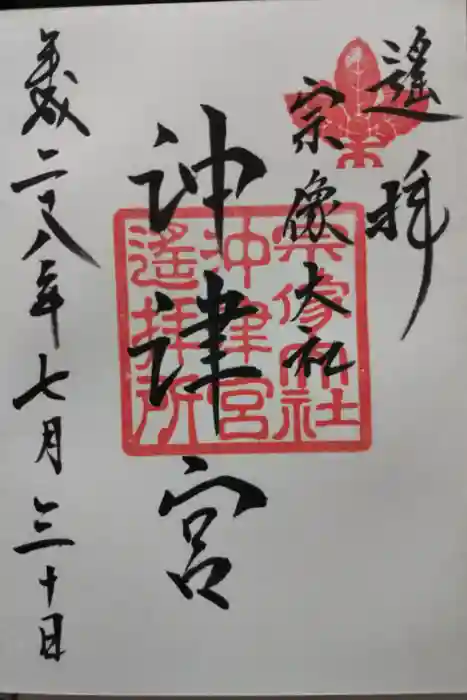 遙拝
宗像大社
沖津宮
平成二十八年七月三十日
宗像大社
沖津宮
遥拝所